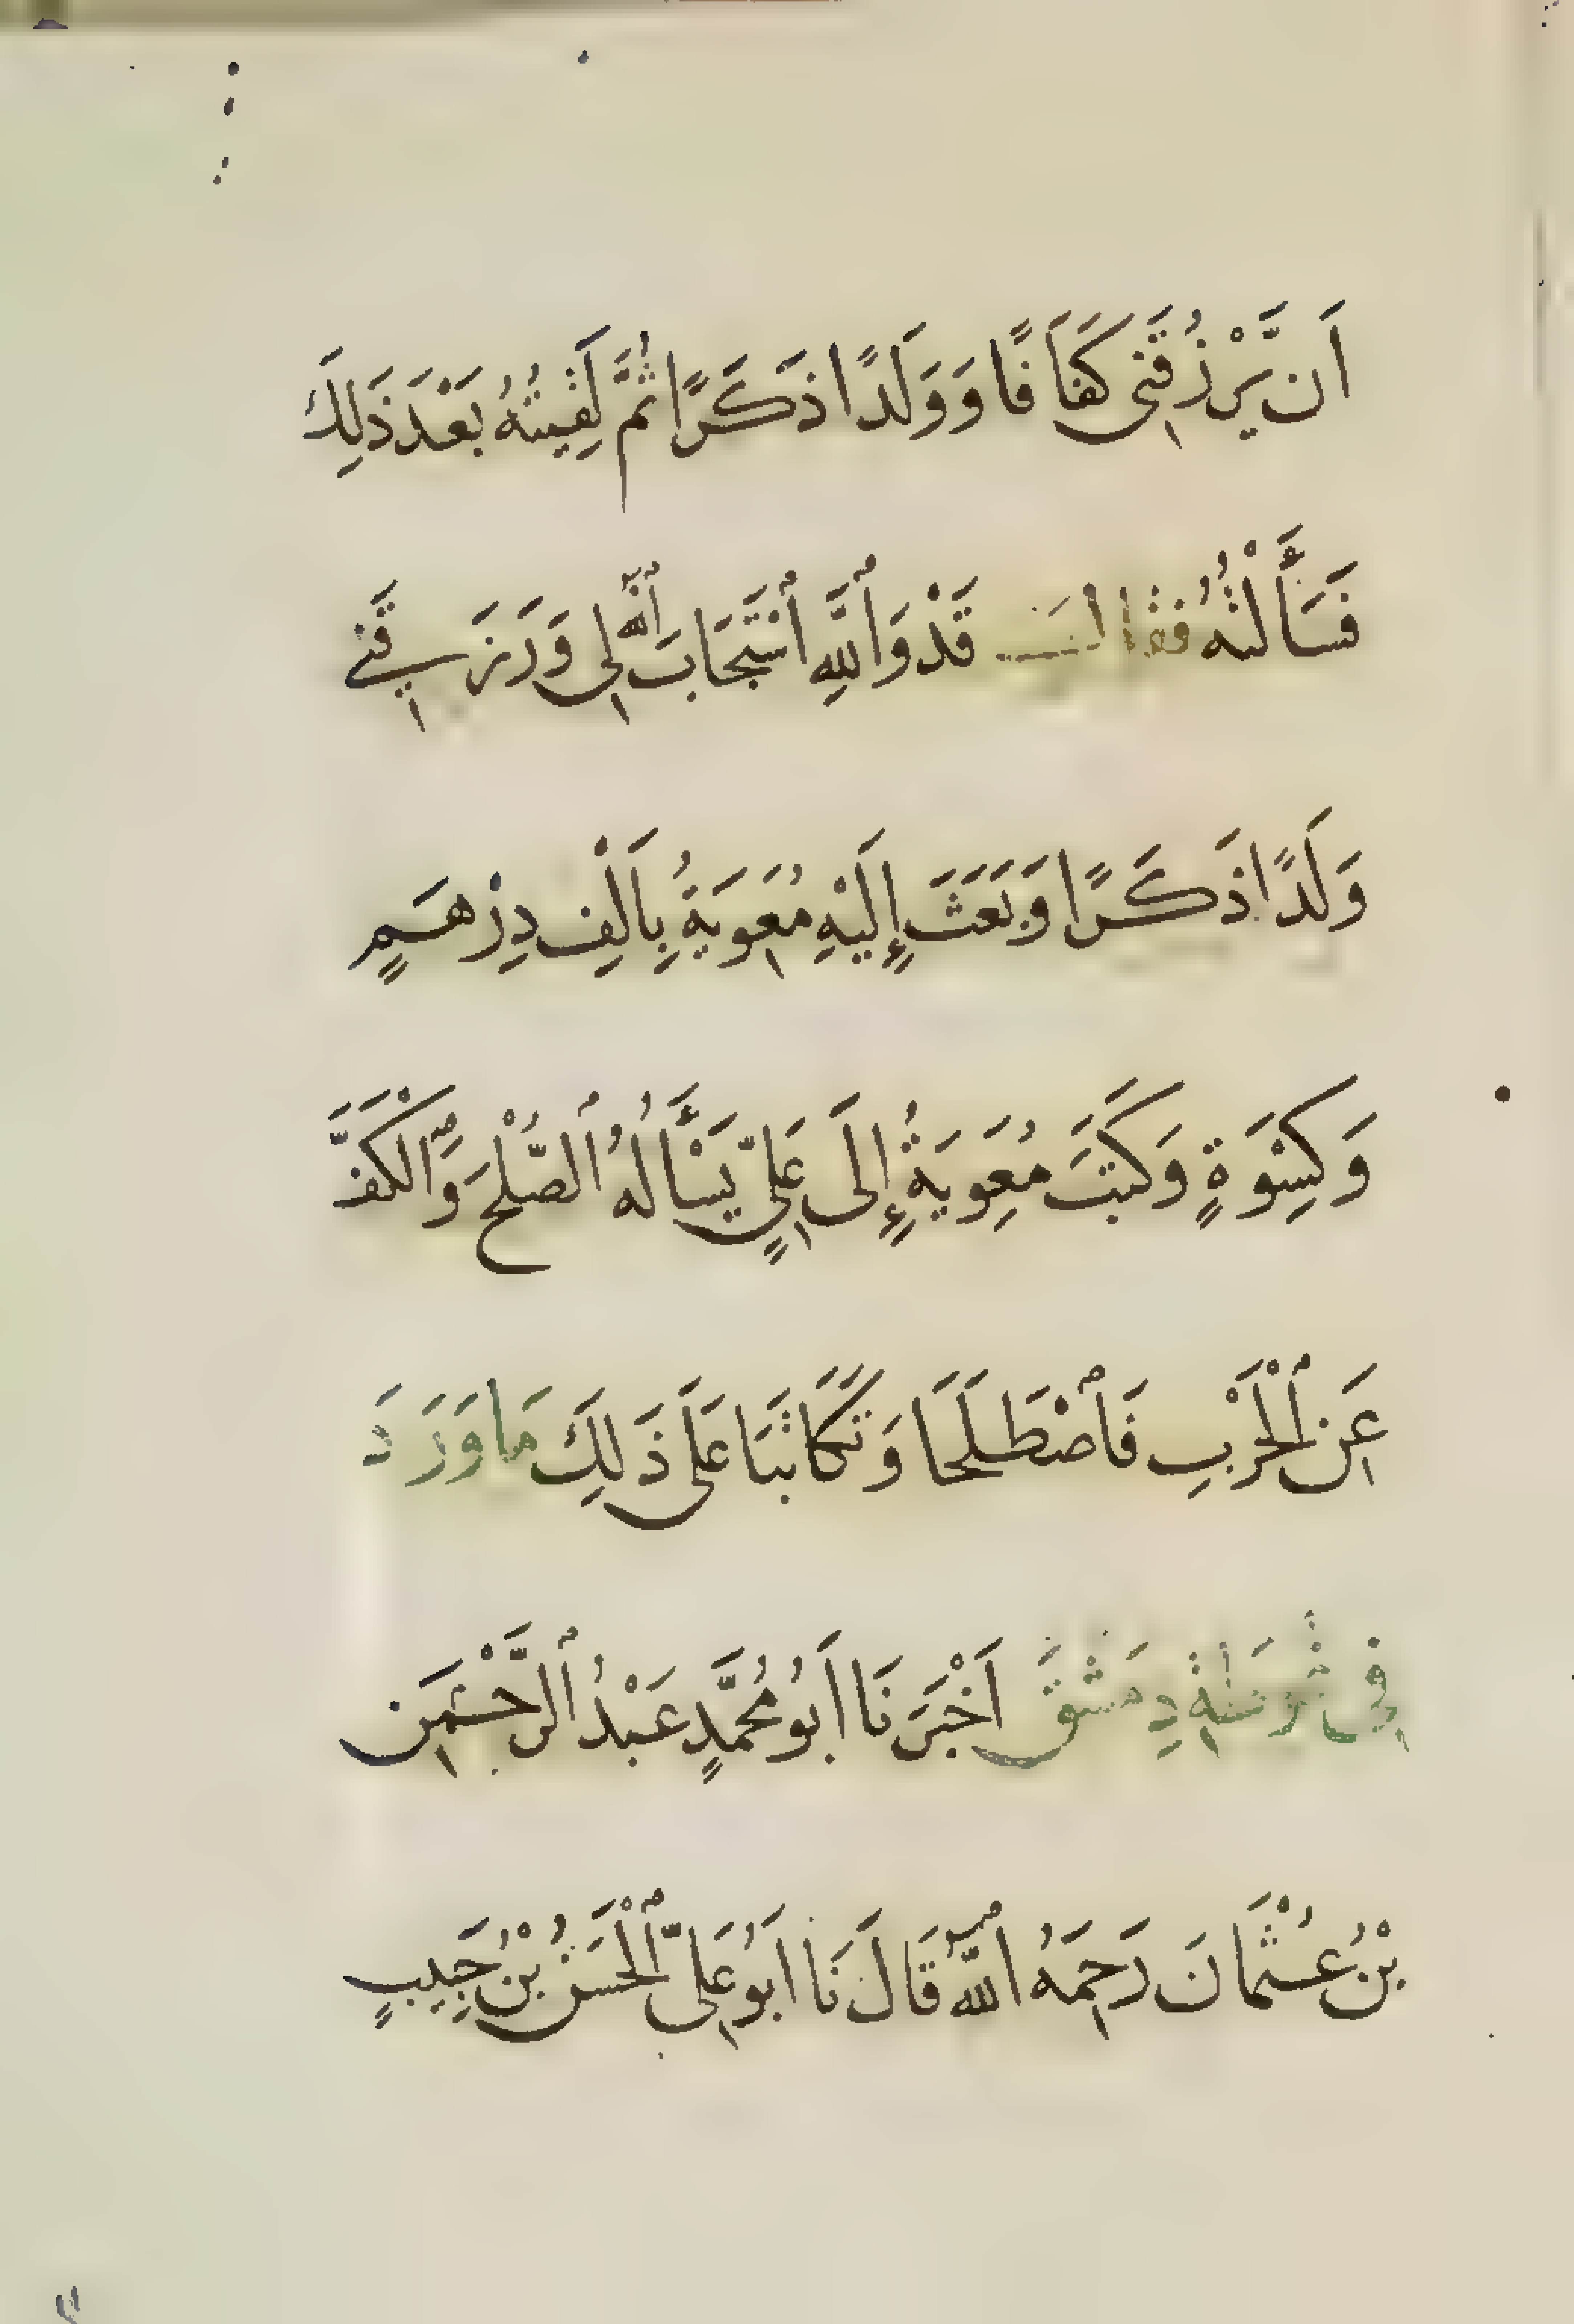 اَن يَّرْزُقَنِى كَفَافًا وَوَلَدًا ذَكَرًا ثُمَّ لَقِيتُهُ بَعْدَ ذَلِكَ
فَسَأَلْتُهُ فَقَالَ قَدْ وَٱللَّهِ ٱسْتَجَابَ ٱللَّهُ لِى وَرَزَقَنِى
وَلَدًا ذَكَرًا وَبَعَثَ إِلَيْهِ مُعَوِيَةُ بِاَلْفِ دِرْهَمٍ
وَكِسْوَةٍ وَكَتَبَ مُعَوِيَةُ إِلَى عَلِيٍّ يَسْأَلُهُ ٱلصُّلْحَ وَٱلْكَفَّ
عَنِ ٱلْحَرْبِ فَٱصْطَلَحَا وَتَكَاتَبَا عَلَى ذَلِكَ مَا وَرَدَ
فِى تُرْبَةِ دِمَشْقَ اَخْبَرَنَا اَبُو مُحَمَّدٍ عَبْدُ ٱلرَّحْمَنِ
بْنُ عُثْمَانَ رَحِمَهُ ٱللَّهُ قَالَ نَا اَبُو عَلِىّ ٱلْحَسَنُ بْنُ حَبِيبٍ